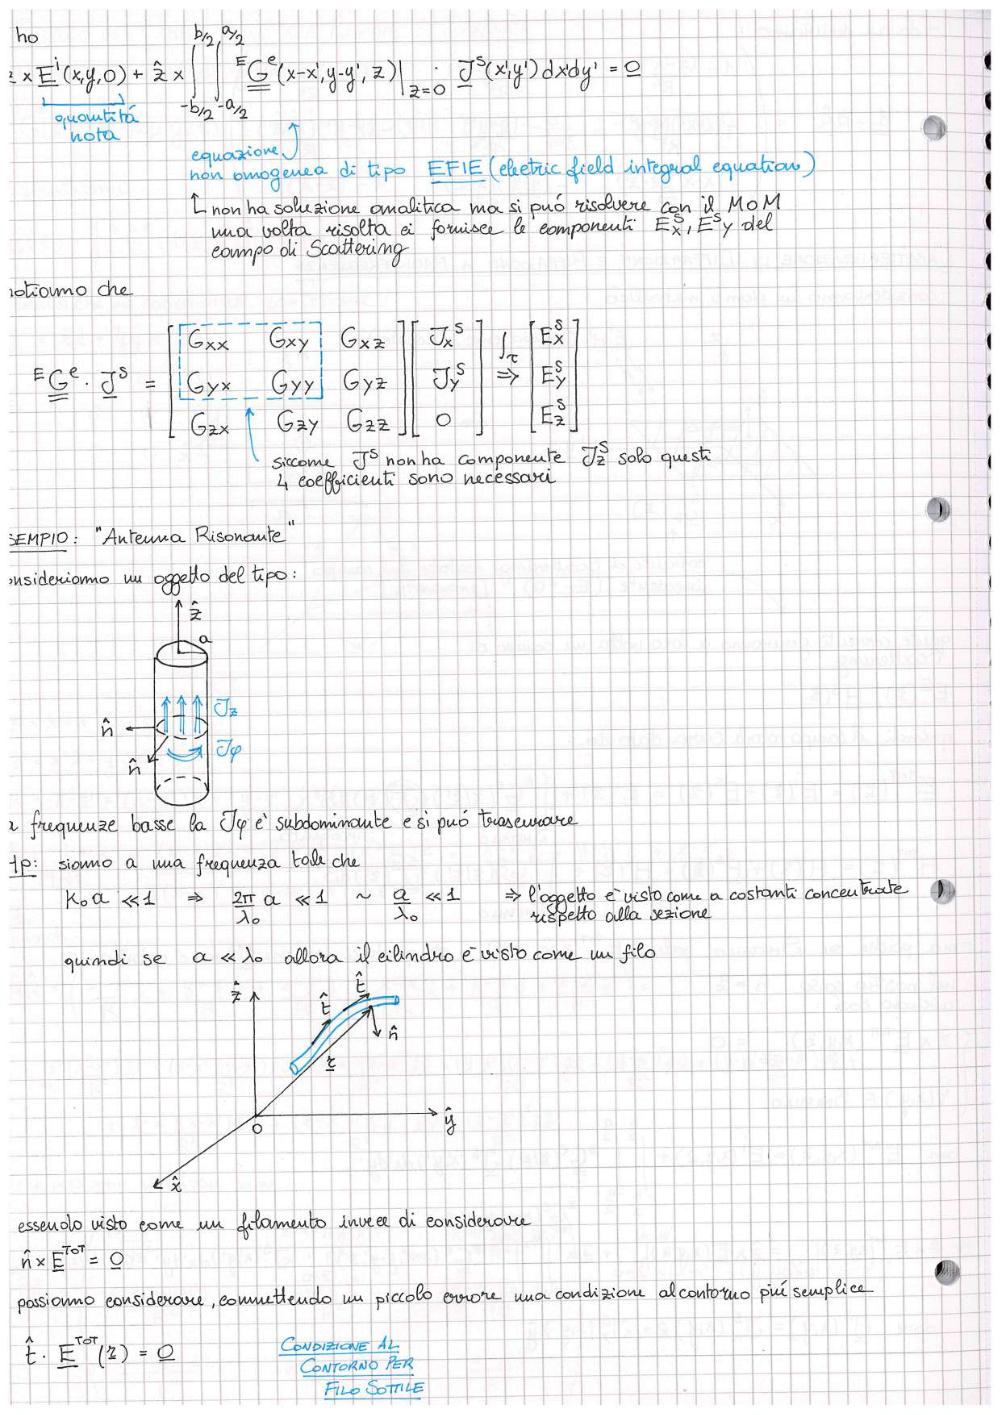 ho
ẑ × E̲ⁱ(x,y,0) + ẑ × ∫_{-b/2}^{b/2} ∫_{-a/2}^{a/2} ᴱG̲̲ᵉ(x-x', y-y', z)|_{z=0} · J̲ˢ(x',y') dx'dy' = 0̲
quantitá
nota
equazione
non omogenea di tipo EFIE (eletric field integral equation)
↳ non ha soluzione analitica ma si puó risolvere con il MoM
una volta risolta ci fornisce le componenti E_x^S, E^S_y del
campo di Scattering
notiamo che
ᴱG̲̲ᵉ · J̲ˢ = [Gxx Gxy Gxz] [J_x^S] ∫_τ [E_x^S]
[Gyx Gyy Gyz] [J_y^S] ⇒ [E_y^S]
[Gzx Gzy Gzz] [0] [E_z^S]
siccome Jˢ non ha componente J_z^S solo questi
4 coefficienti sono necessari
SEMPIO: "Antenna Risonante"
onsideriamo un oggetto del tipo:
ẑ
a
Jz
n̂
Jφ
n̂
a frequenze basse la Jφ é subdominante e si puó trascurare
Hp: siamo a una frequenza tale che
K₀a ≪ 1 ⇒ 2π/λ₀ a ≪ 1 ~ a/λ₀ ≪ 1 ⇒ l'oggetto é visto come a costanti concentrate
rispetto alla sezione
quindi se a ≪ λ₀ allora il cilindro é visto come un filo
ẑ t̂ t̂
n̂
r̲
ŷ
O
x̂
essendo visto come un filamento invece di considerare
n̂ × E̲^TOT = 0̲
possiamo considerare, commettendo un piccolo errore una condizione al contorno piú semplice
t̂ · E̲^TOT(r̲) = 0̲
CONDIZIONE AL
CONTORNO PER
FILO SOTTILE